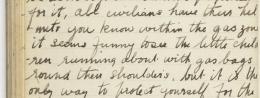 for it, all civilians have their hel
mits you know within the gas zon
it seems funny to see the little child
ren running about with gas bags
round their shoulders, but it is the
only way to protect yourself for the